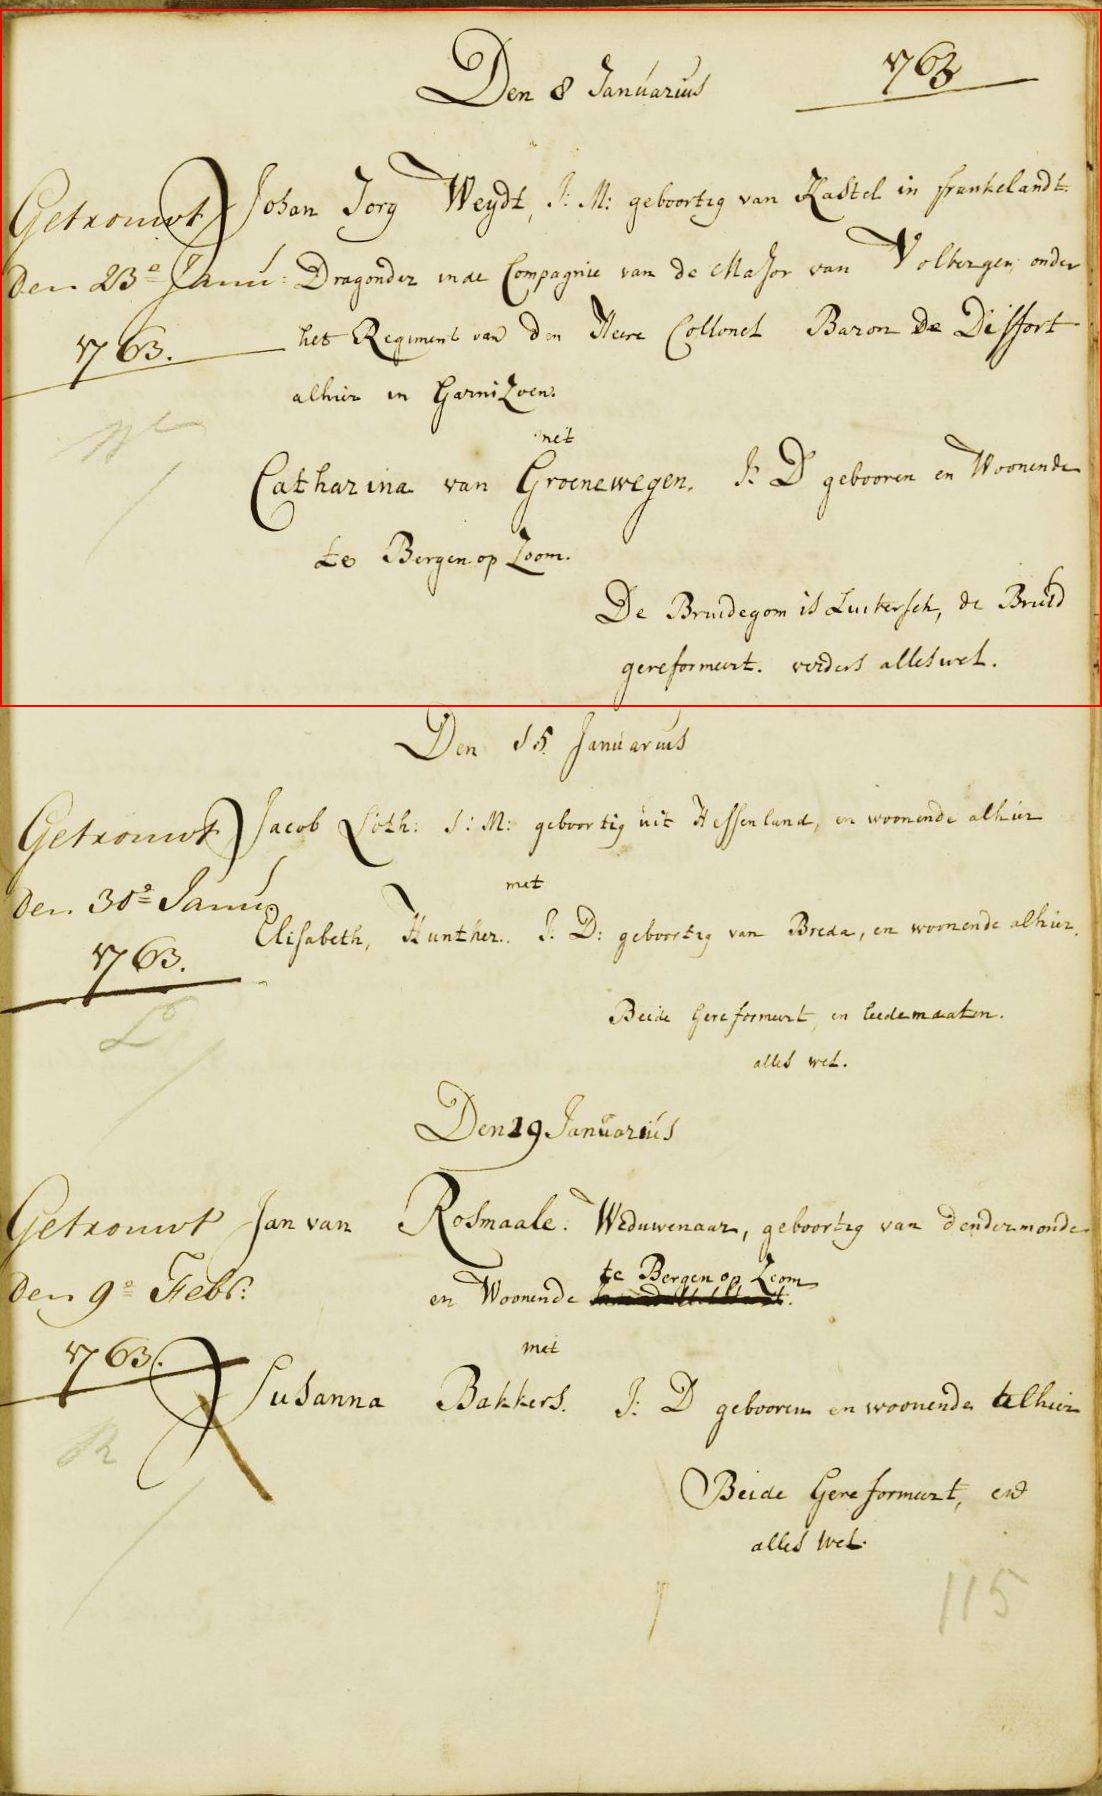 Den 8 Januarius
1763
Getrouwt
Den 23e Janu:
1763.
We
Johan Jorg Weydt, J: M: geboortig van Kastel in frankelandt.
Dragonder in de Compagnie van de Major van Volbergen, onder
het Regiment van den Heere Collonel Baron de Disfort
alhier in Garnizoen.
met
Catharina van Groenewegen. J: D geboren en Woonende
te Bergen op Zoom.
De Bruidegom is Luitersch, de Bruid
gereformeert. verders alles wel.
Den 15 Januarius
Getrouwt
Den 30e Janu:
1763.
L
Jacob Loth: J: M: geboortig uit Hessenland, en woonende alhier
met
Elisabeth, Hunther. J: D: geboortig van Breda, en woonende alhier.
Beide Gereformeert, en leedemaaten.
alles wel.
Den 19 Januarius
Getrouwt
Den 9e Febr:
1763.
R
Jan van Rosmaale. Weduwenaar, geboortig van dendermonde
te Bergen op Zoom
en Woonende
met
Susanna Bakkers. J: D gebooren en woonende alhier
Beide Gereformeert, en
alles wel.
115